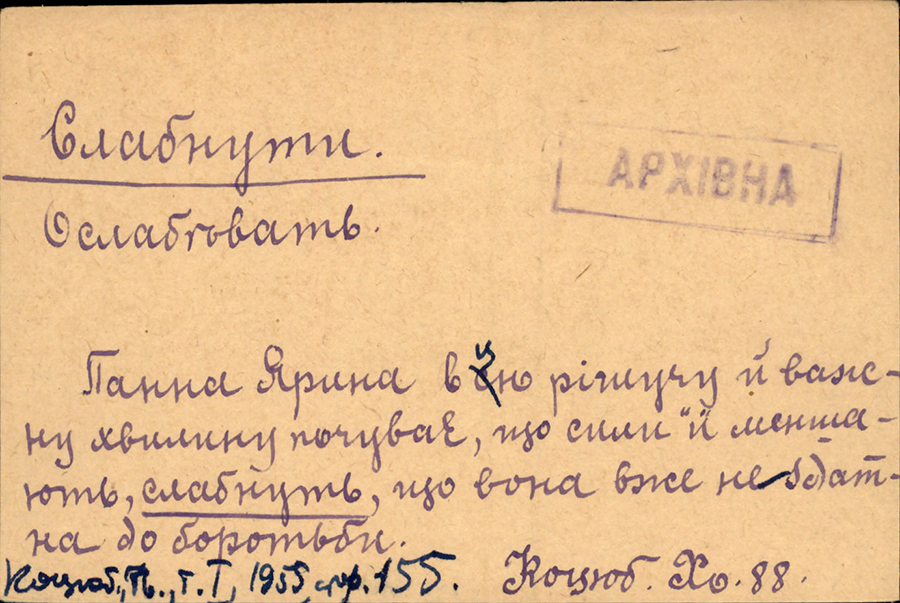 Слабнути.
АРХІВНА
Ослабѣвать.
Панна Ярина в цю рішучу й важ-
ну хвилину почуває, що сили її менша-
ють, слабнуть, що вона вже не здат-
на до боротьби.
Коцюб., Тв., т. I, 1955, стор. 155. Коцюб. Хо. 88.